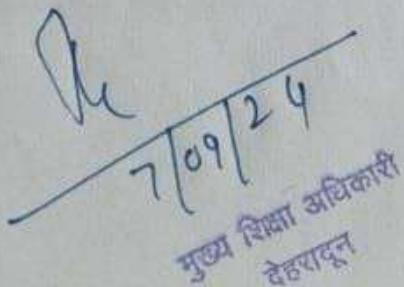 7/09/24
मुख्य शिक्षा अधिकारी
देहरादून